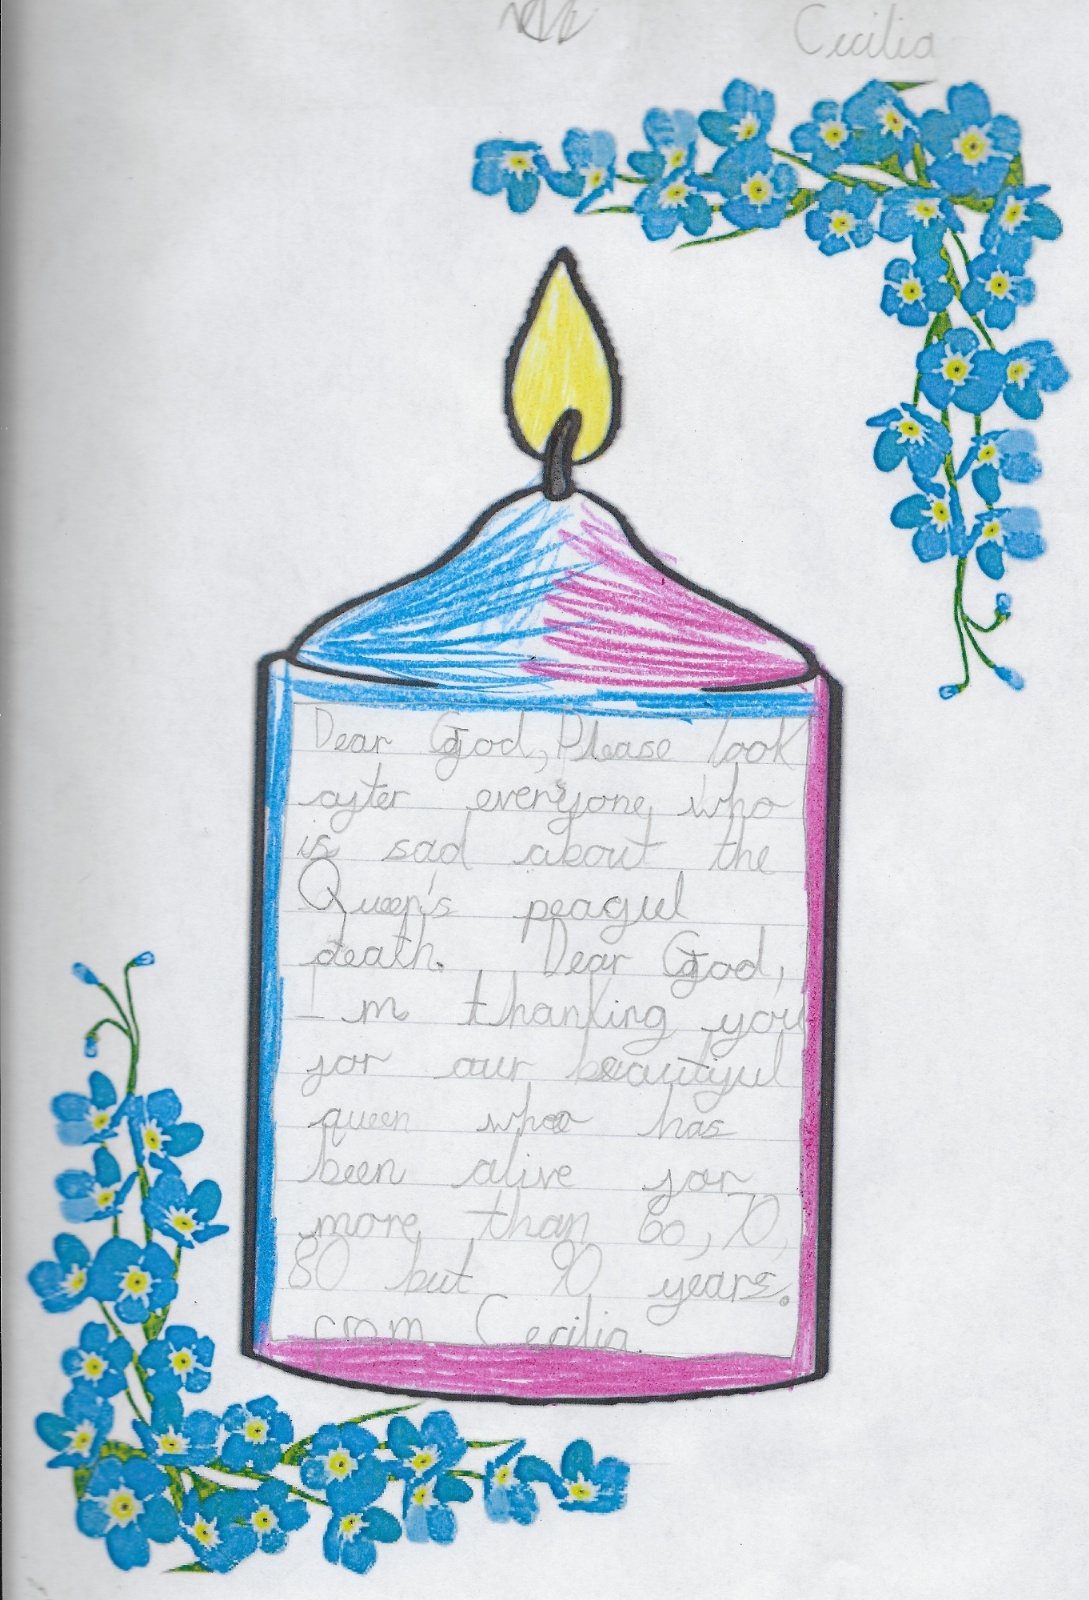 Cecilia
Dear God, Please look
after everyone who
is sad about the
Queen's peaful
death. Dear God,
I m thanking you
for our beautiful
queen who has
been alive for
more than 60, 70,
80 but 90 years.
from Cecilia